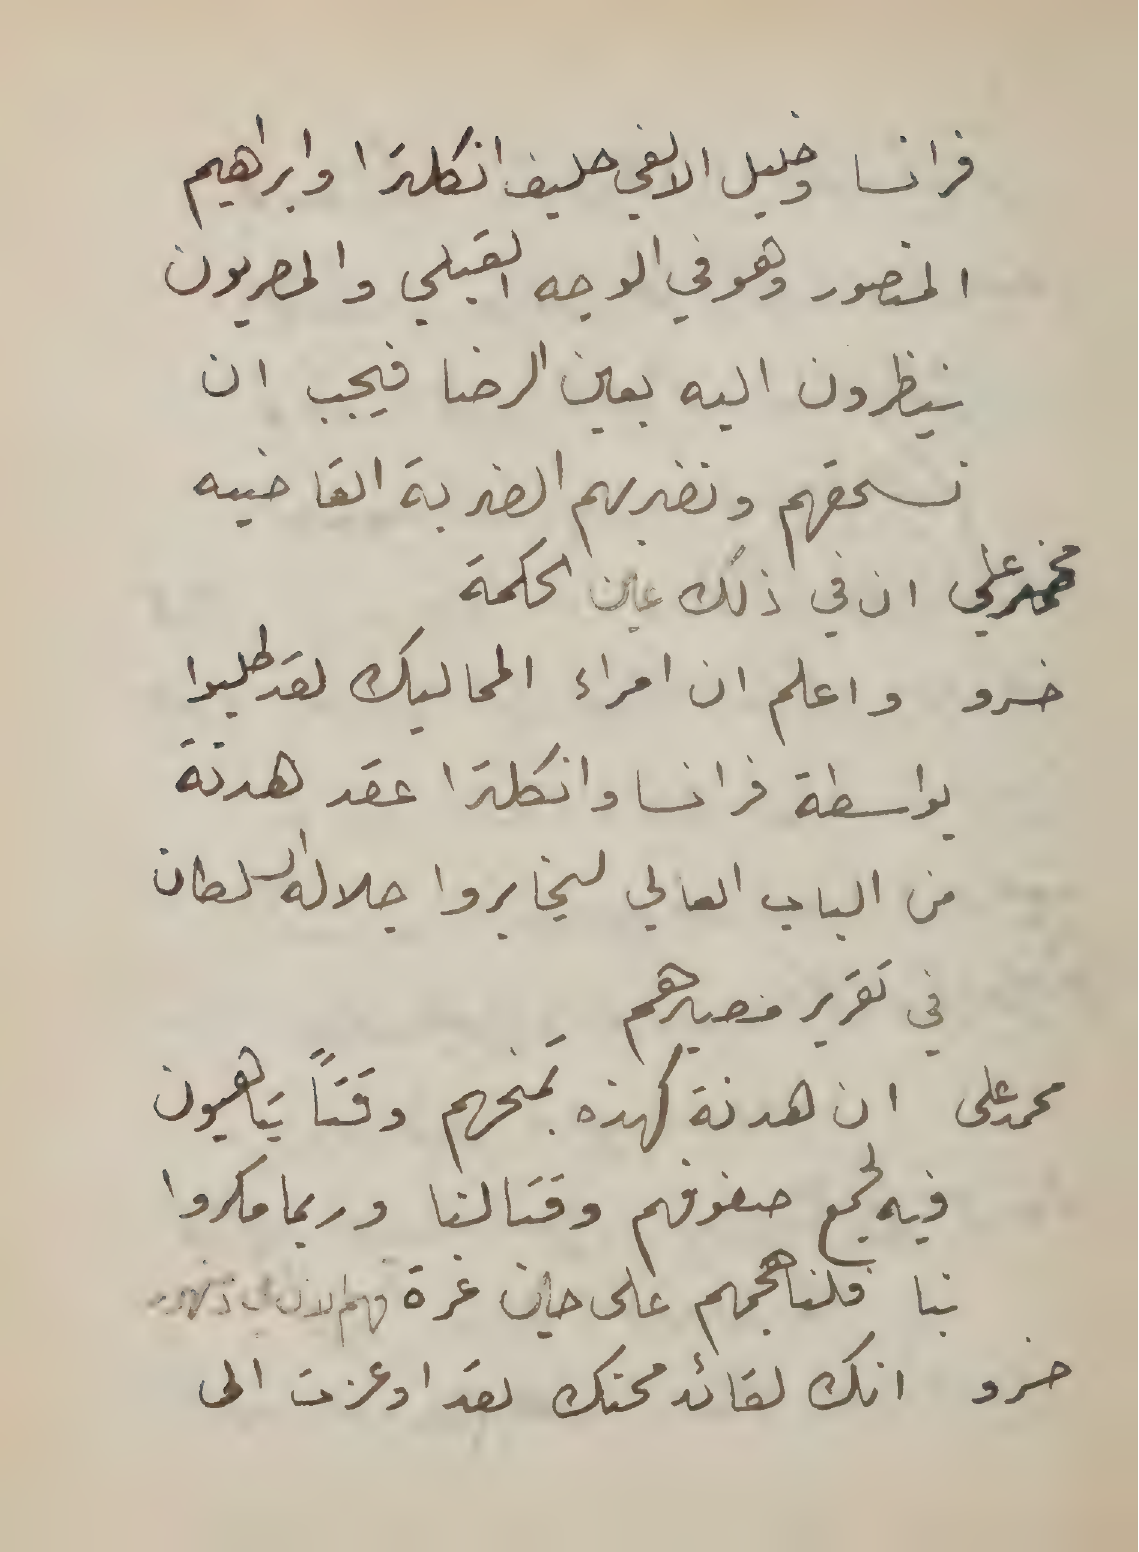 فرانسا وخليل الالفي حليف انكلترا وابراهيم
المنصور وهو في الوجه القبلي والمصريون
ينظرون اليه بعين الرضا فيجب ان
نسحقهم ونضربهم الضربة القاضيه
محمد علي ان في ذلك عين الحكمة
خسرو واعلم ان امراء المماليك لقد طلبوا
بواسطة فرانسا وانكلترا عقد هدنة
من الباب العالي ليخابروا جلالة السلطان
في تقرير مصيرهم
محمد علي ان هدنة كهذه تمنحهم وقتاً يتاهبون
فيه لجمع صفوفهم وقتالنا وربما مكروا
بنا فلنهاجمهم على حين غرة فهم الان في
خسرو انك لقائد محنك لقد اوعزت الى